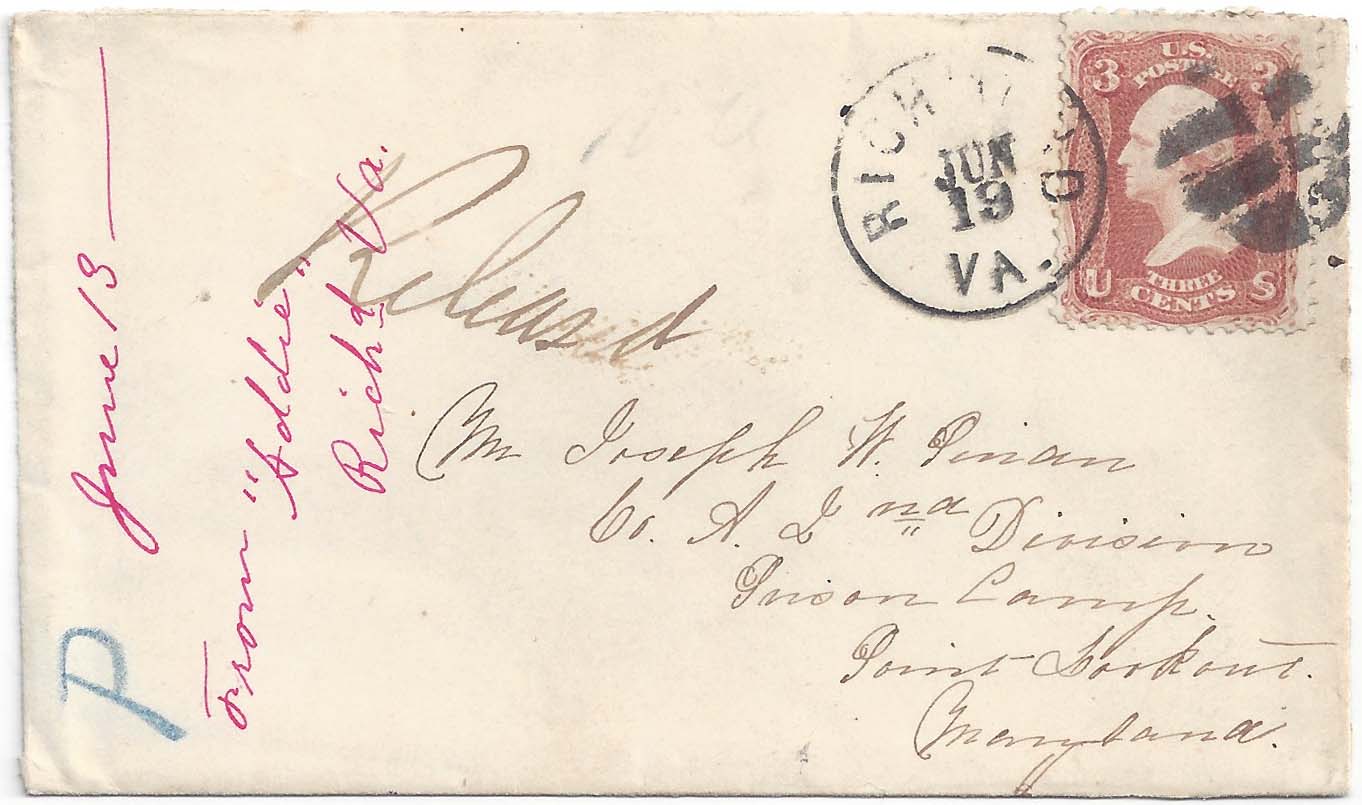 RICHMOND
JUN
19
VA.
U.S.
POSTAGE
3 3
U THREE S
CENTS
Released
Mr Joseph W. Pinan
Co. A. 2nd Division
Prison Camp.
Point Lookout.
Maryland.
June 18
From "Addie"
Richd Va.
P